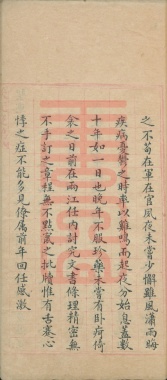 之不苟在軍在官夙夜未嘗少懈雖風瀟雨晦
疾病憂鬱之時率以雞鳴而起夜分始息蓋數
十年如一日也晚年不服珍藥未嘗有卧疴倚
衾之日前在兩江任内討究文書條理精密無
不手訂之章程無不點竄之批牘惟有舌蹇心
悸之症不能多見僚屬前年回任感激